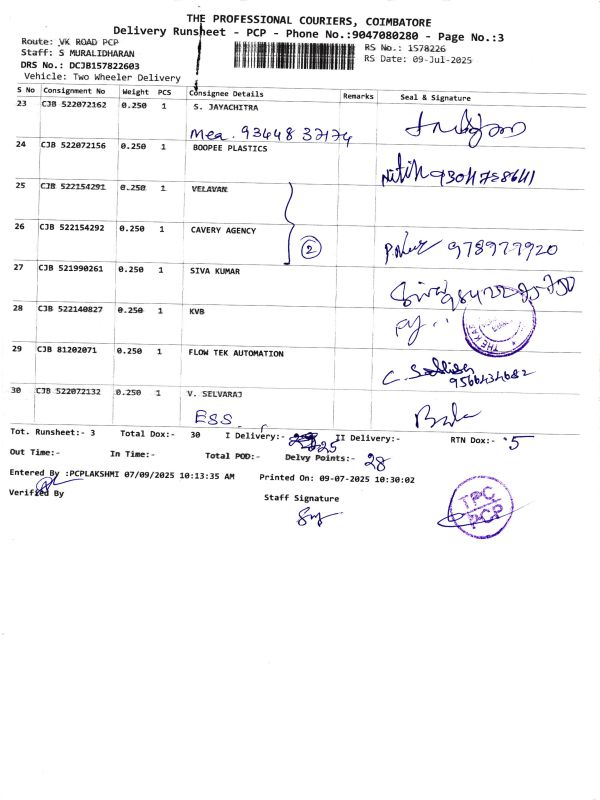 THE PROFESSIONAL COURIERS, COIMBATORE
Delivery Runsheet - PCP - Phone No.:9047080280 - Page No.:3
Route: VK ROAD PCP
RS No.: 1578226
Staff: S MURALIDHARAN
RS Date: 09-Jul-2025
DRS No.: DCJB157822603
Vehicle: Two Wheeler Delivery
S No Consignment No Weight PCS Consignee Details Remarks Seal & Signature
23 CJB 522072162 0.250 1 S. JAYACHITRA
Mea. 93448 37174
24 CJB 522072156 0.250 1 BOOPEE PLASTICS
Nitin
25 CJB 522154291 0.250 1 VELAVAN
26 CJB 522154292 0.250 1 CAVERY AGENCY
2
9789777920
27 CJB 521990261 0.250 1 SIVA KUMAR
Siva
28 CJB 522140827 0.250 1 KVB
29 CJB 81202071 0.250 1 FLOW TEK AUTOMATION
9566434682
30 CJB 522072132 0.250 1 V. SELVARAJ
ESS.
Bala
Tot. Runsheet:- 3 Total Dox:- 30 I Delivery:- 25 II Delivery:- RTN Dox:- 5
Out Time:- In Time:- Total POD:- Delvy Points:- 28
Entered By :PCPLAKSHMI 07/09/2025 10:13:35 AM Printed On: 09-07-2025 10:30:02
Verified By
Staff Signature
TPC
PCP